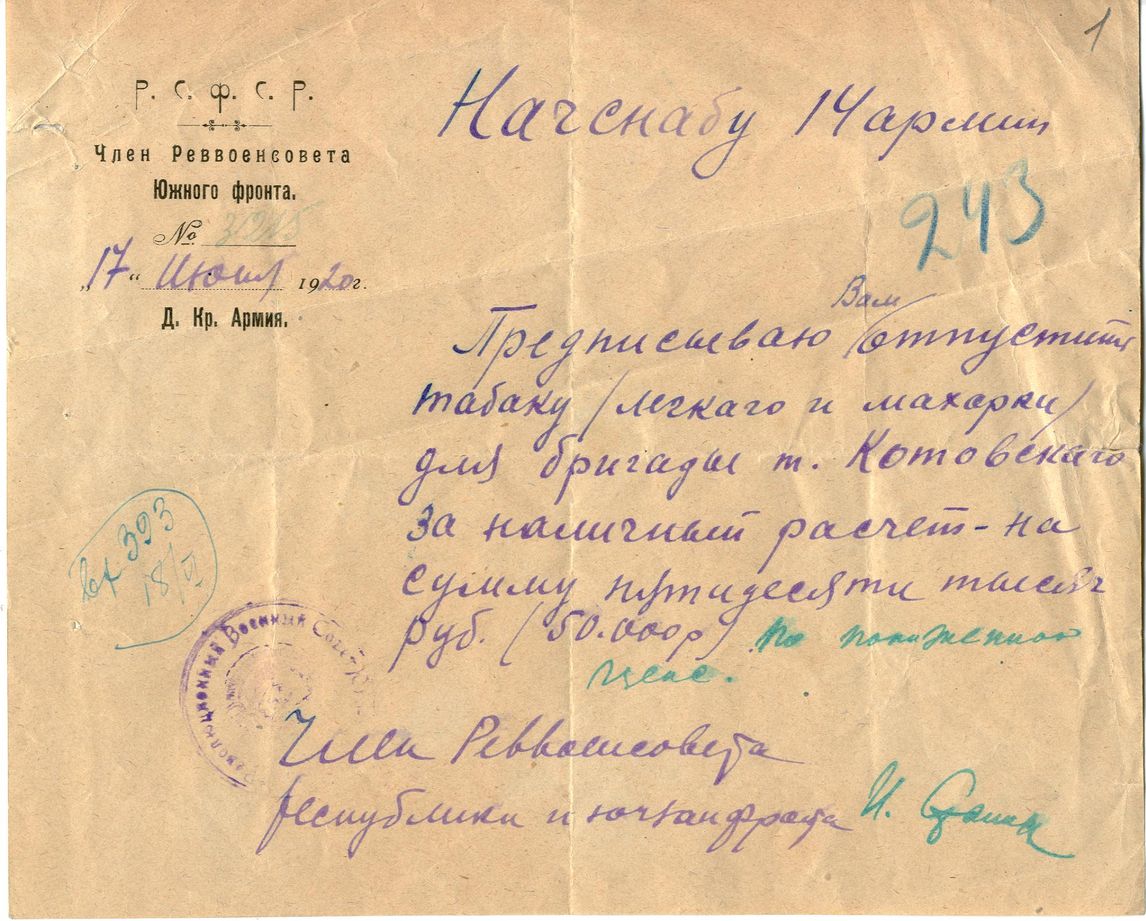 1
Р. С. Ф. С. Р.
Член Реввоенсовета
Южного фронта.
№ 3945
„17“ Июня 1920 г.
Д. Кр. Армия.
Начснабу 14 армии
243
Вам
Предписываю отпустить
табаку /легкаго и махорки/
для бригады т. Котовскаго
За наличный расчет - на
сумму пятидесяти тысяч
руб. (50.000 р) по пониженной
цене.
вх 393
18/VI
Революционный Военный Совет
Член Реввоенсовета
Республики и югзапфронта И. Сталин